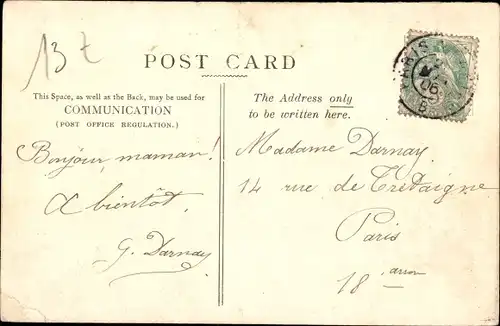 13 t
POST CARD
PARIS
06
This Space, as well as the Back, may be used for
COMMUNICATION
(POST OFFICE REGULATION.)
The Address only
to be written here.
Bonjour, maman!
A bientôt,
G. Darnay
Madame Darnay
14 rue de Trétaigne
Paris
18 arron